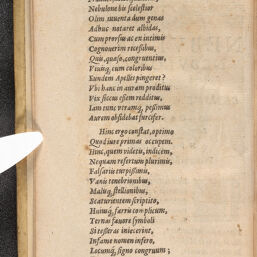 Nebulone bis scelestior
Olim iuuenta dum genas
Adhuc notaret albidas,
Cum prorsus ac en intimis
Cognouerim recessibus,
Quis, quæso, congruentius,
Viuisq́; cum coloribus
Eundem Apelles pingeret?
Vbi hanc in auram proditus
Vix siccus essem redditus,
Iam tunc utramq́; pessimus
Aurem obsidebat furcifer.
Hinc ergo constat, optimo
Quod iure primas occupem.
Hinc, quem videtis, indicem,
Nequam refertum plurimis,
Falsariis turpissimis,
Vanis tenebrionibus,
Malisq́; stellionibus,
Scaturientem scripsito,
Huiusq́; farris complicum,
Ternas fauore symboli
Si tesseras iniecerint,
Infame nomen infero,
Locumq́; signo congruum;